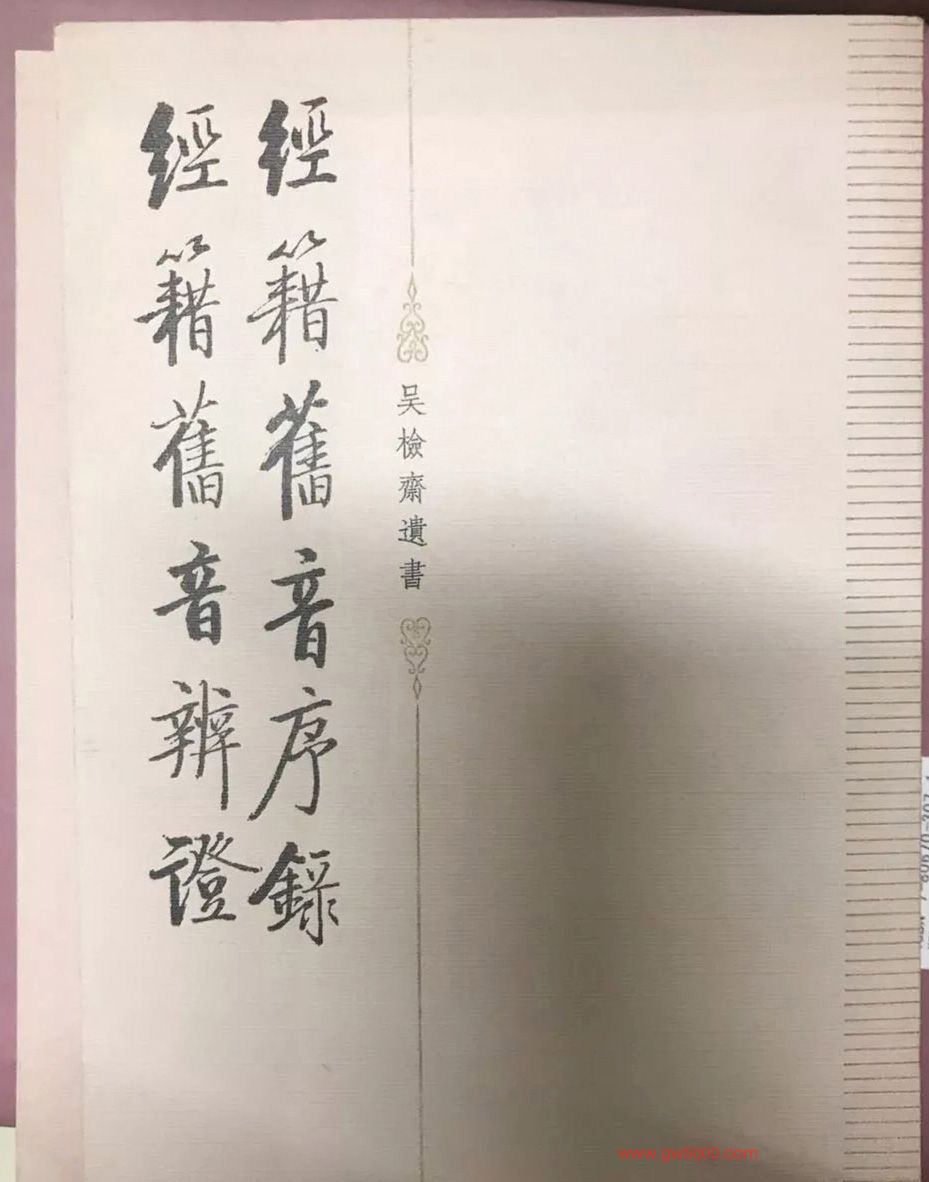 吴檢齋遺書
經籍舊音序錄
經籍舊音辨證
www.gw8009.com